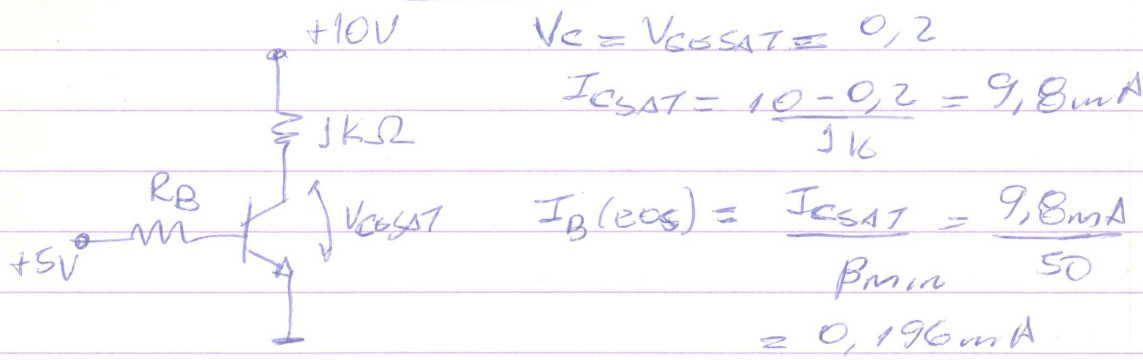 +10V
1kΩ
RB
+5V
VCESAT
VC = VCESAT = 0,2
ICSAT = 10-0,2 / 1k = 9,8mA
IB(eos) = ICSAT / βmin = 9,8mA / 50
= 0,196mA